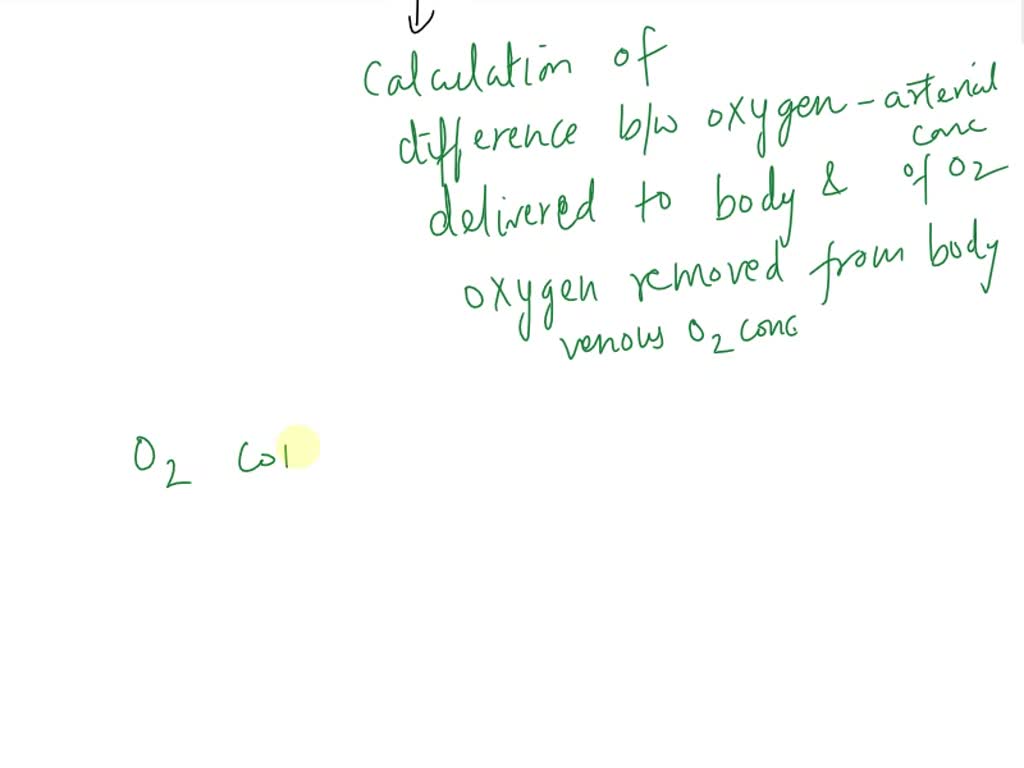 Calculation of
difference b/w oxygen - arterial
conc
delivered to body & of O2
oxygen removed from body
venous O2 conc
O2 Co